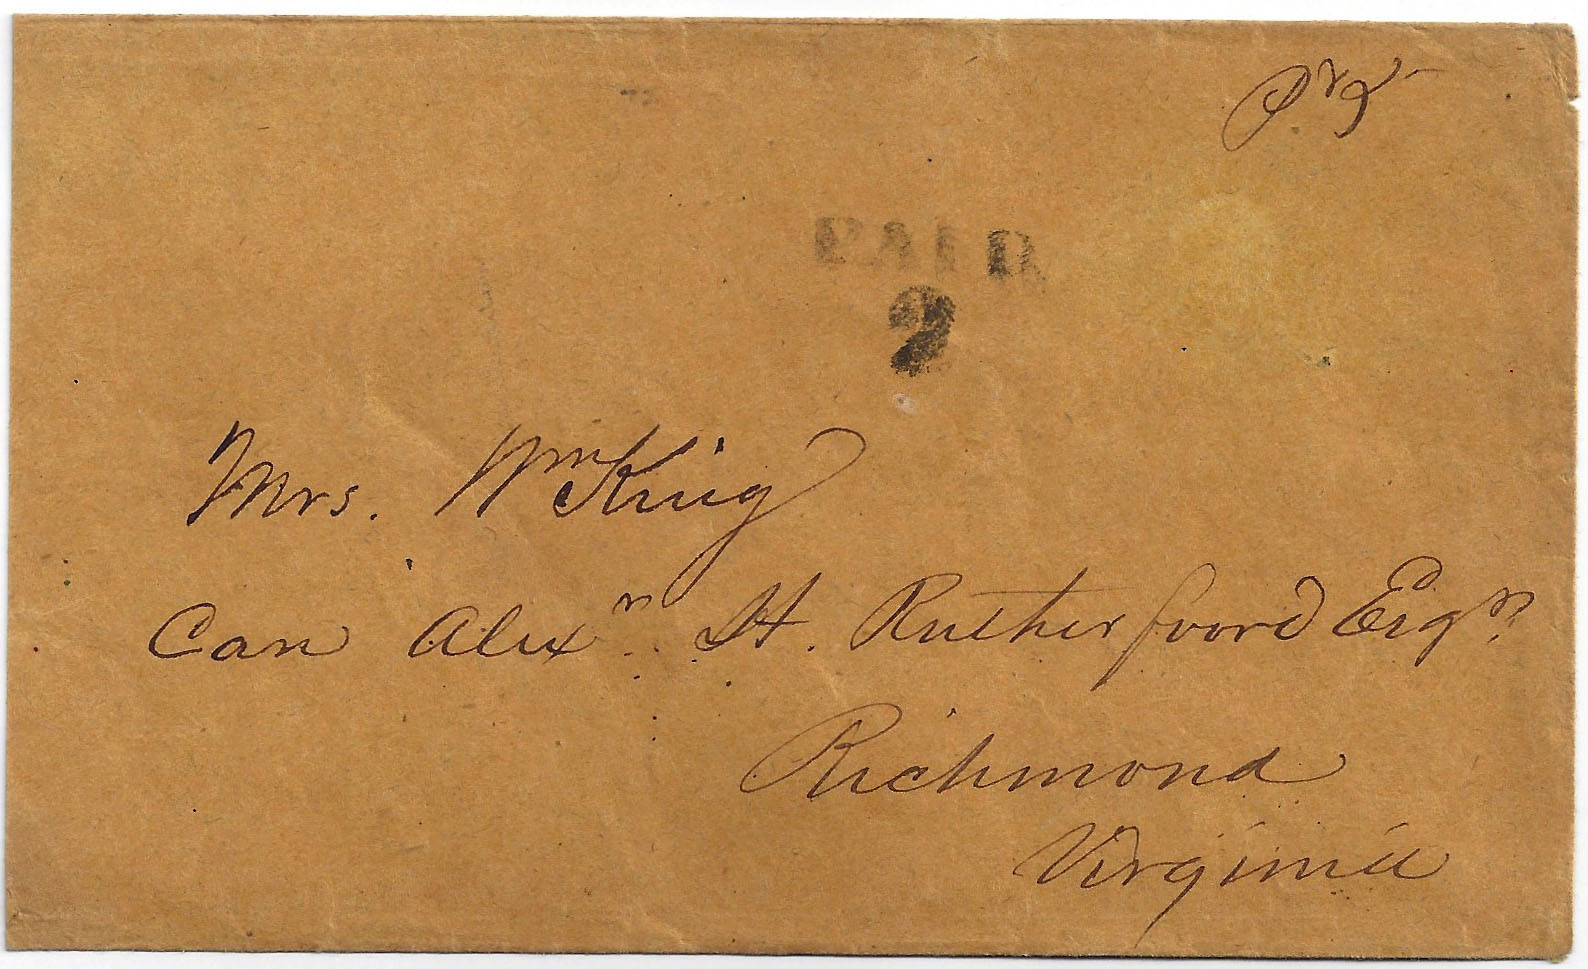 PAID
2
Mrs. Wm King
Care Alexr. H. Rutherfoord Esqr.
Richmond
Virginia